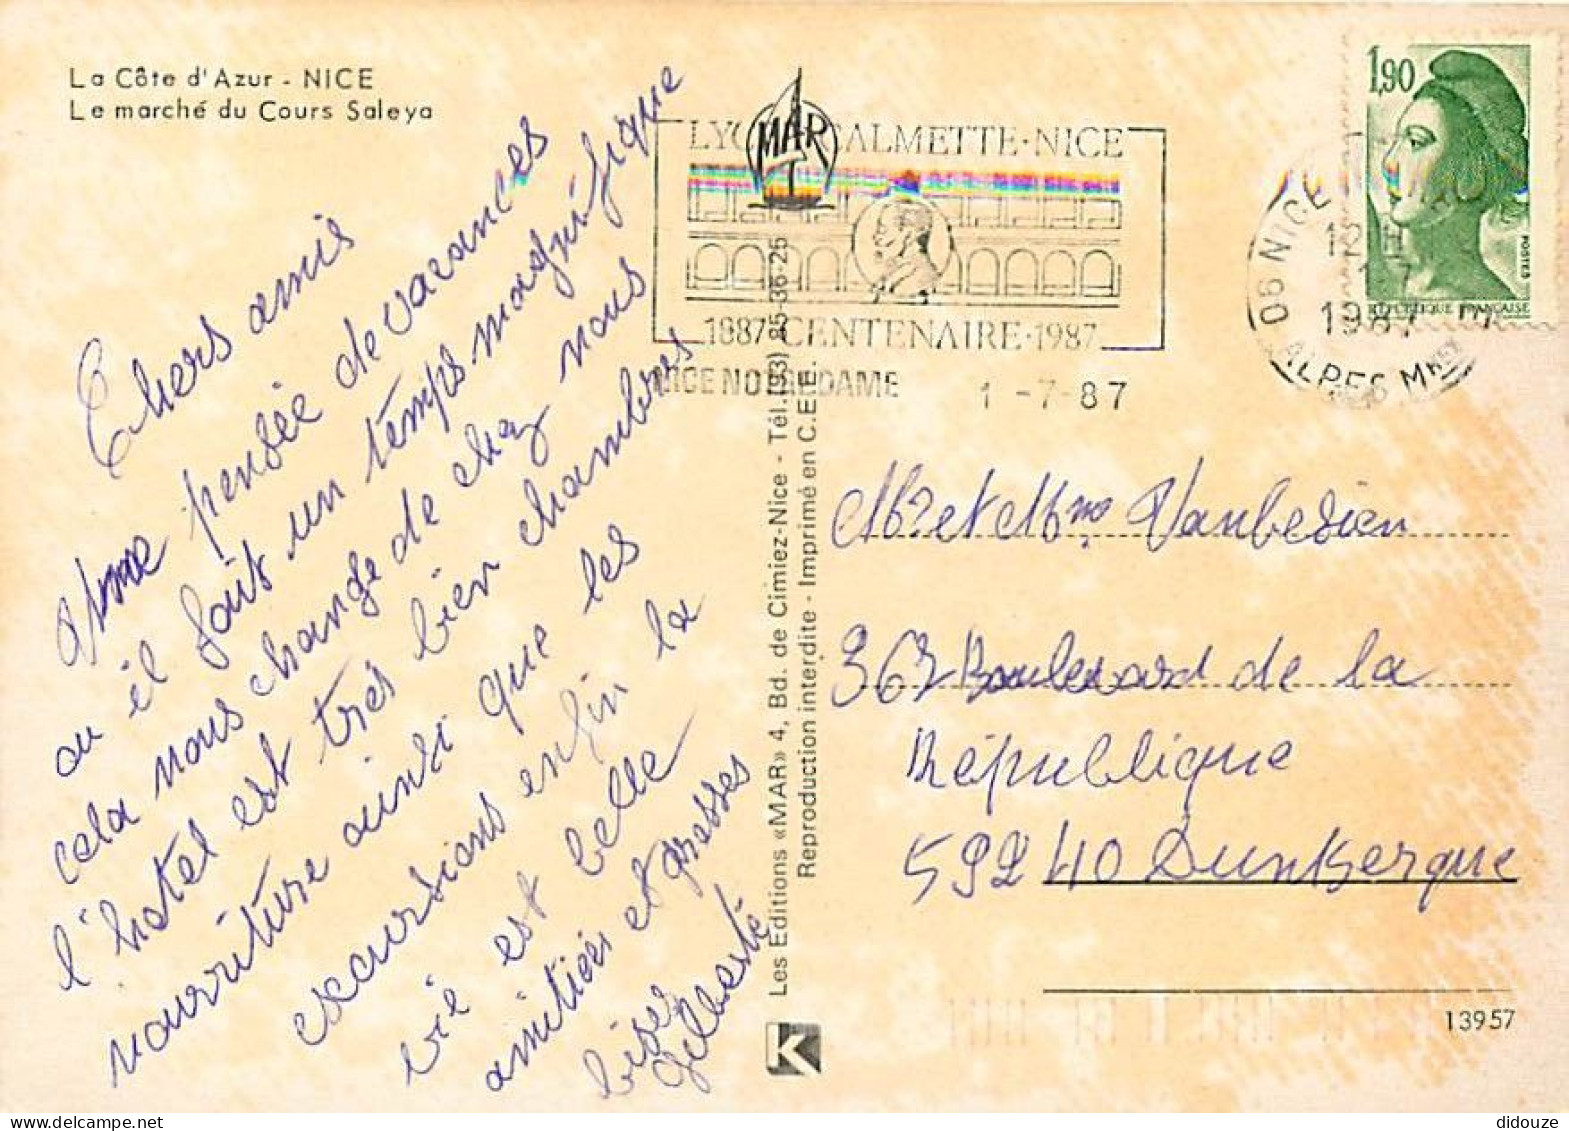 La Côte d'Azur - NICE
Le marché du Cours Saleya
Chers amis
Une pensée de vacances
ou il fait un temps magnifique
cela nous change de chez nous
l'hotel est très bien chambres
nourriture ainsi que les
excursions enfin la
vie est belle
amitiés et grosses
bises
Gilberte
MAR
CALMETTE·NICE
1887·CENTENAIRE·1987
NICE NOTRE DAME 1-7-87
06 NICE
1987
ALPES Mmes
1,90
POSTES
RÉPUBLIQUE FRANÇAISE
Les Editions «MAR» 4, Bd. de Cimiez-Nice - Tél. (93) 85-36-25
Reproduction interdite - Imprimé en C.E.E.
Mr et Mme Vanbesien
362 Boulevard de la
République
59240 Dunkerque
13957
K
didouze